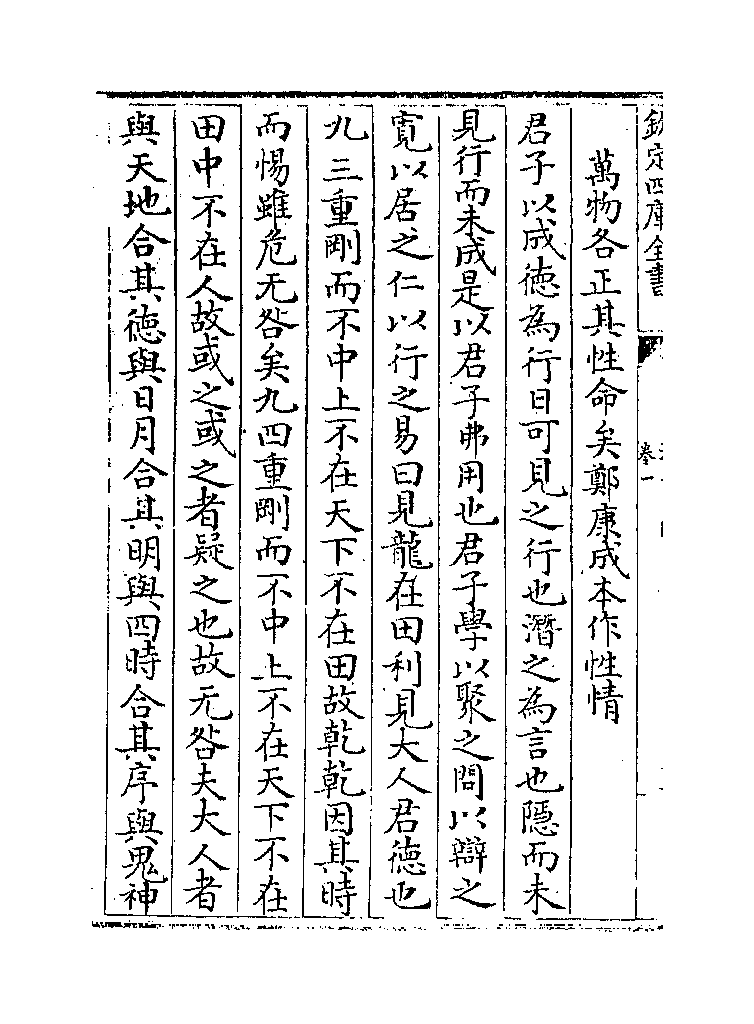 欽定四庫全書
卷一
萬物各正其性命矣鄭康成本作性情
君子以成徳為行日可見之行也潛之為言也隱而未
見行而未成是以君子弗用也君子學以聚之問以辯之
寛以居之仁以行之易曰見龍在田利見大人君徳也
九三重剛而不中上不在天下不在田故乾乾因其時
而惕雖危无咎矣九四重剛而不中上不在天下不在
田中不在人故或之或之者疑之也故无咎夫大人者
與天地合其徳與日月合其明與四時合其序與鬼神